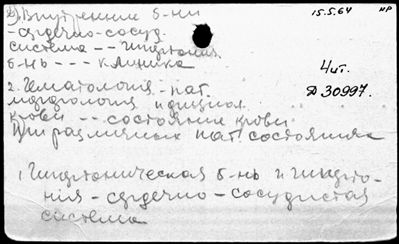 2) Внутренние б-ни
15.5.64
НР
- сердечно-сосуд.
система -- Гипертония.
б-нь --- клиника
Чит.
Д 30997.
2. Гематология - пат.
морфология и физиол.
крови -- состояние крови
При различных пат. состояниях
1. Гипертоническая б-нь и гиперто-
ния - сердечно - сосудистая
система